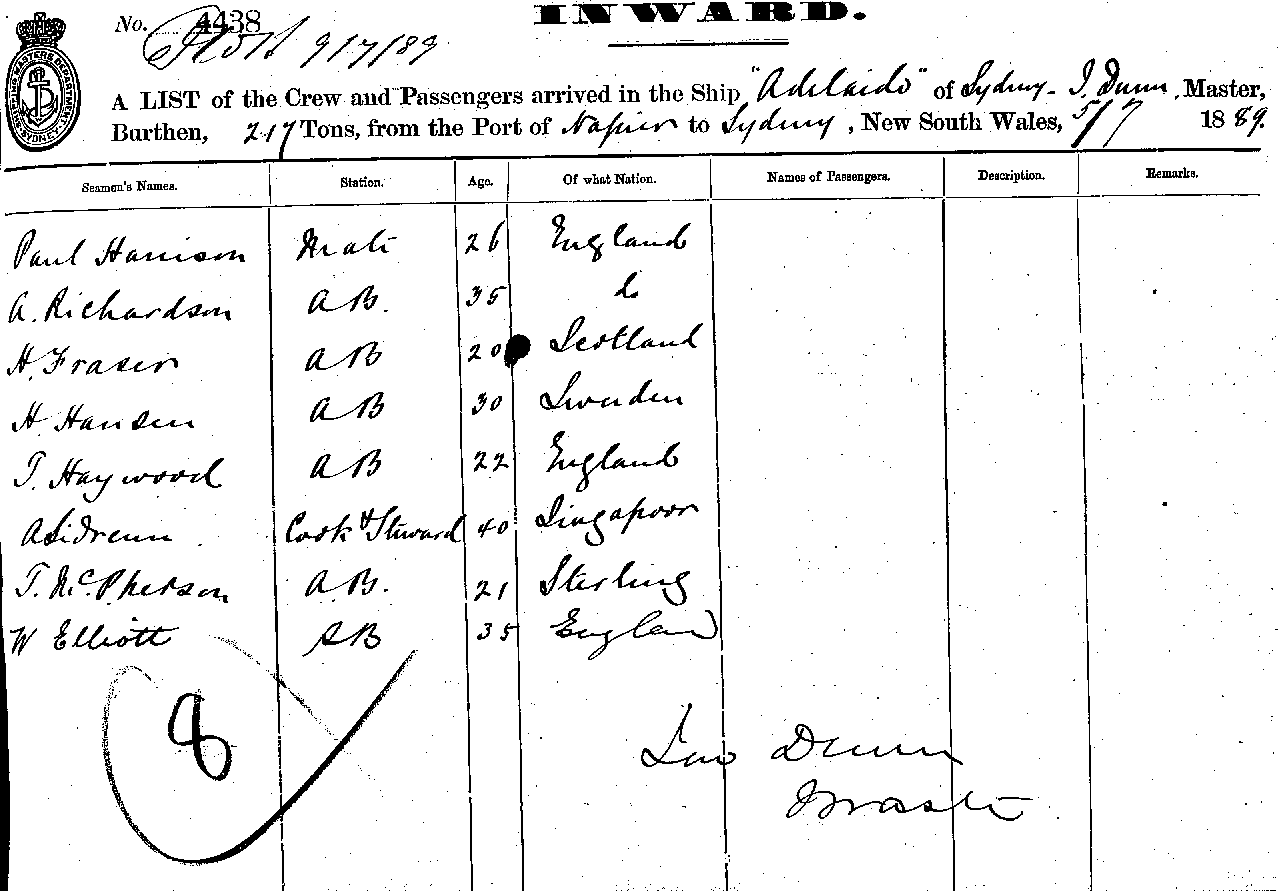 INWARD.
No. 4438
9/7/89
A LIST of the Crew and Passengers arrived in the Ship "Adelaide" of Sydney - J. Dunn, Master,
Burthen, 217 Tons, from the Port of Napier to Sydney, New South Wales, 5/7 1889.
Seamen's Names. Station. Age. Of what Nation. Names of Passengers. Description. Remarks.
Paul Harrison Mate 26 England
A. Richardson AB. 35 do
H. Fraser AB 20 Scotland
H. Hansen AB 30 Sweden
T. Haywood AB 22 England
Cook & Steward 40 Singapoor
T. McPherson A.B. 21 Sterling
W Elliott AB 35 England
8
Dunn
Master